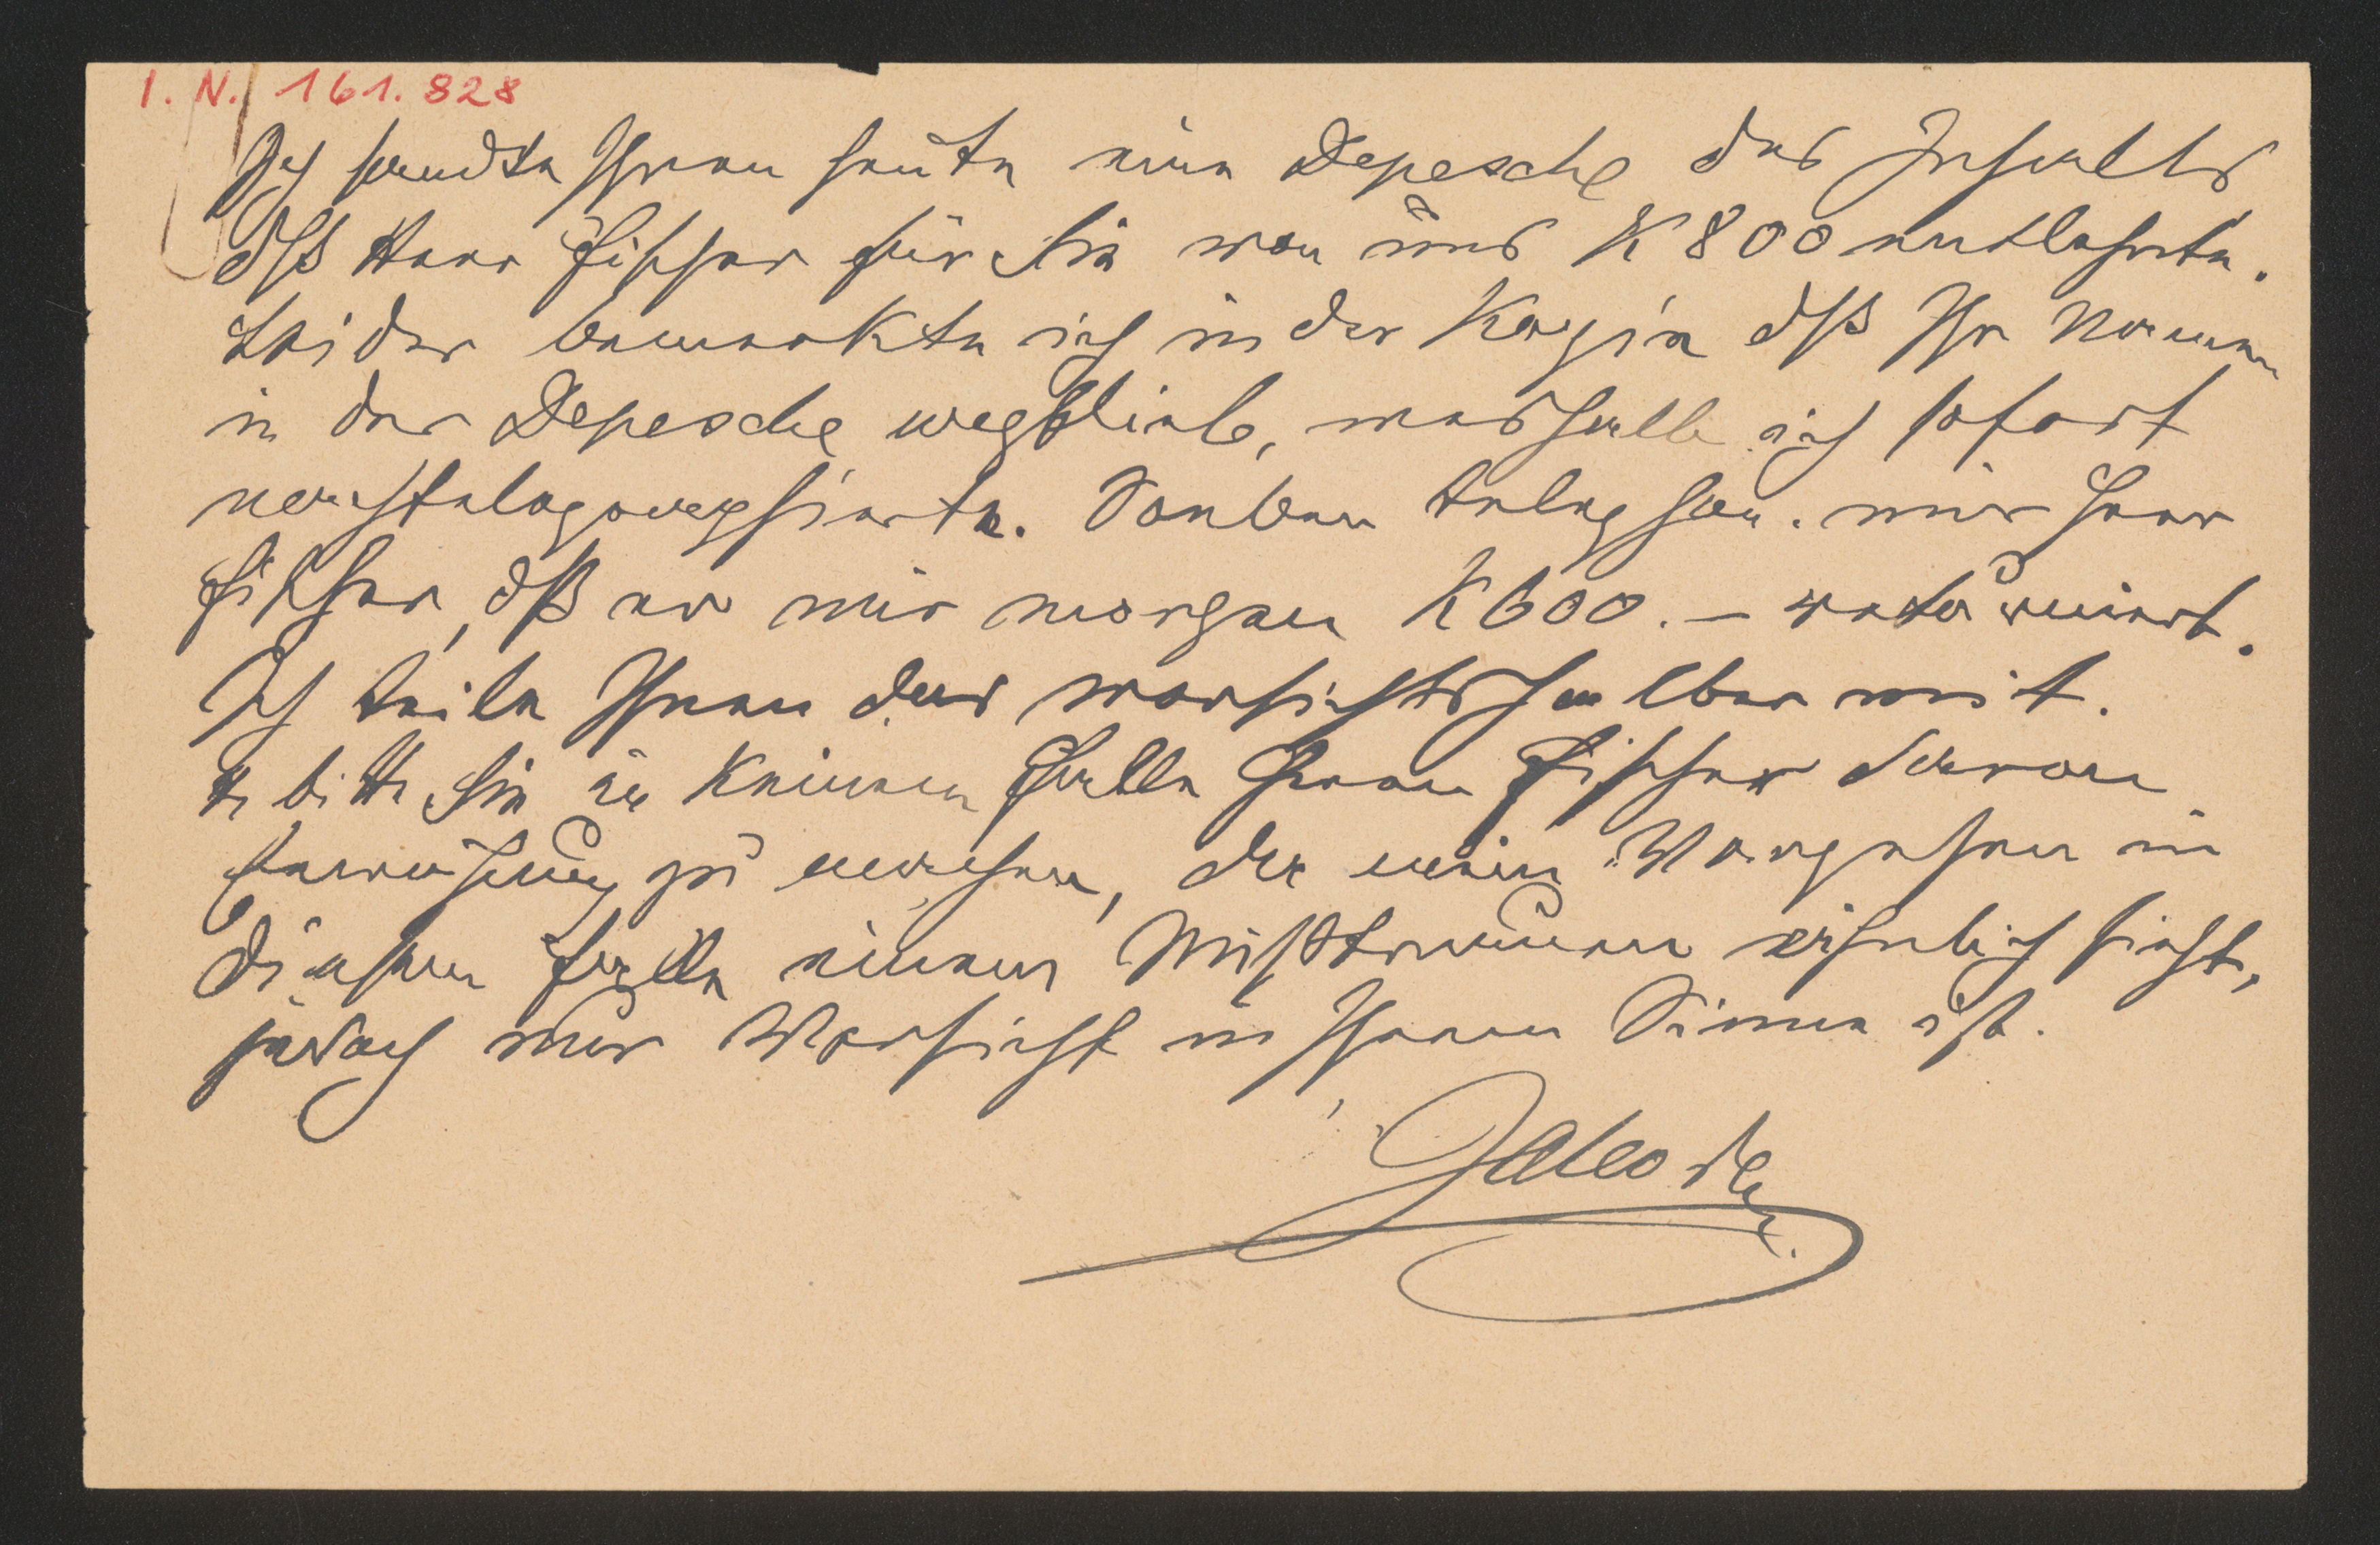 I. N. 161.828
Ich sandte Ihnen heute eine Depesche des Inhalts
dß Herr Fischer für Sie von uns K 800 entlehnte.
Leider bemerkte ich in der Kopie dß Ihr Namen
in der Depesche wegblieb, weshalb ich sofort
nachtelegraphierte. Soeben teleph. mir Herr
Fischer, dß er mir morgen K 600.– retourniert.
Ich teile Ihnen das vorsichtshalber mit.
u bitte Sie in keinem Falle Herrn Fischer davon
Erwähnung zu machen, da mein Vorgehen in
diesem Falle einem Mißtrauen ähnlich sieht,
jedoch nur Vorsicht in Ihrem Sinne ist.